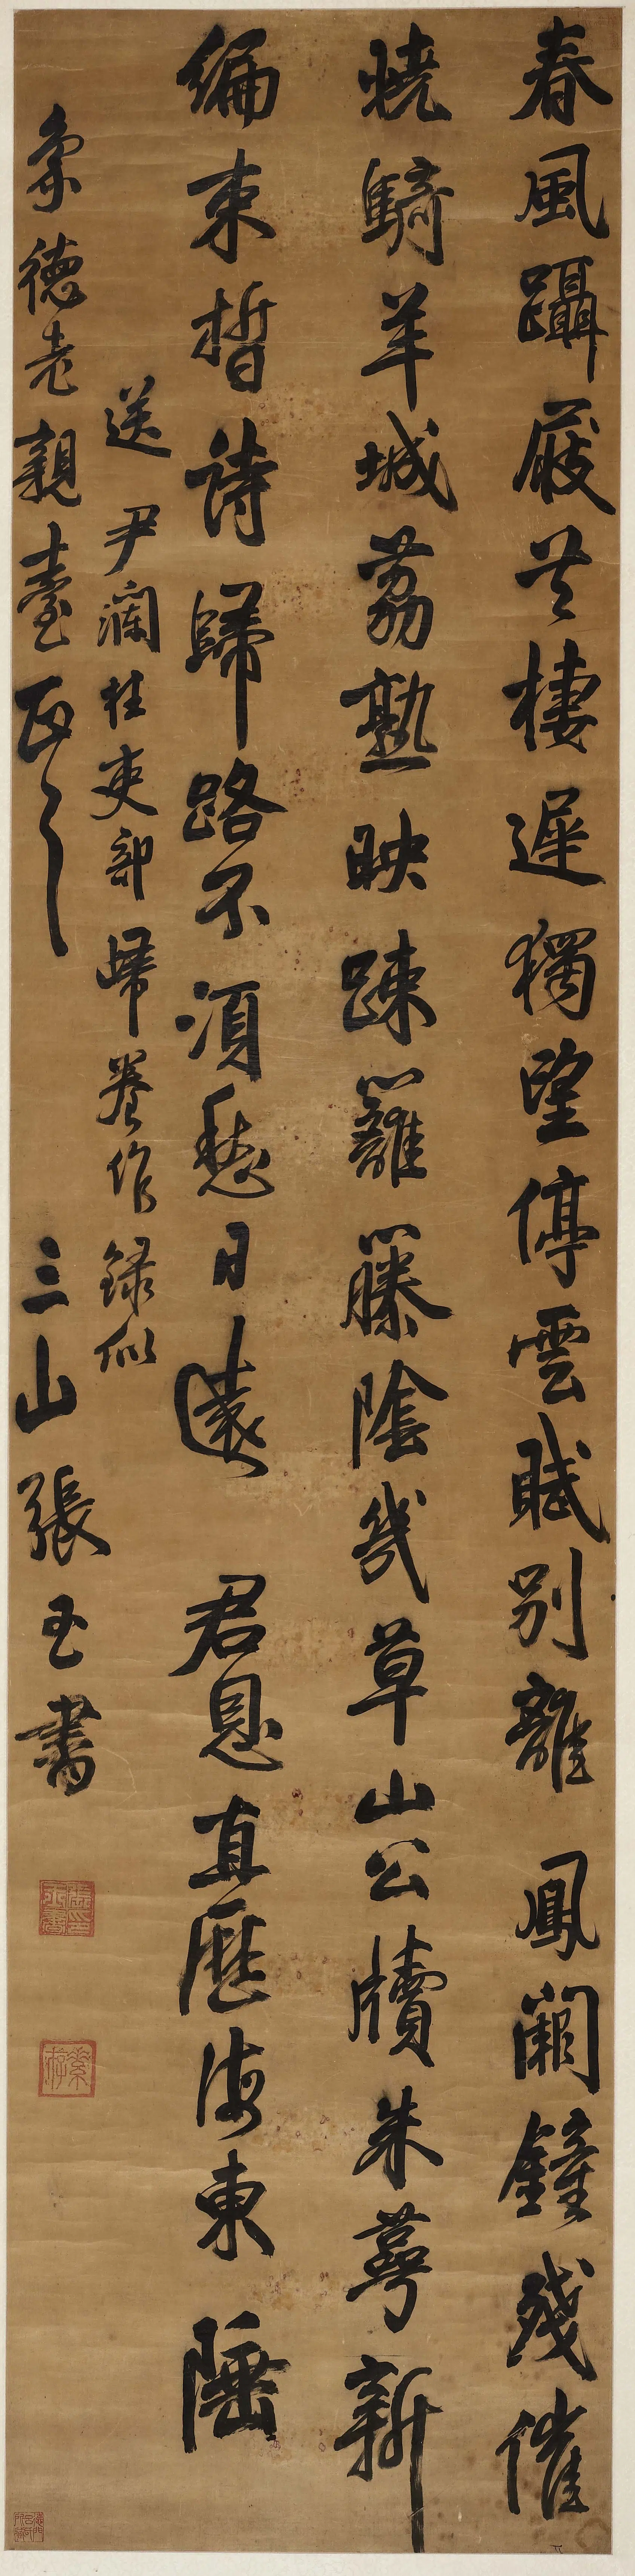 春風躡屐共棲遲獨望停雲賦別離鳳闕鐘殘催
曉騎羊城荔熟映疎籬籐陰幾草山公牘朱萼新
編束皙詩歸路不須愁日遠君恩直歷海東陲
送尹瀾柱吏部歸養作錄似
象德老親臺正之 三山張玉書